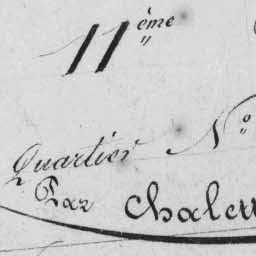 11ème
Quartier No
Par Chalett